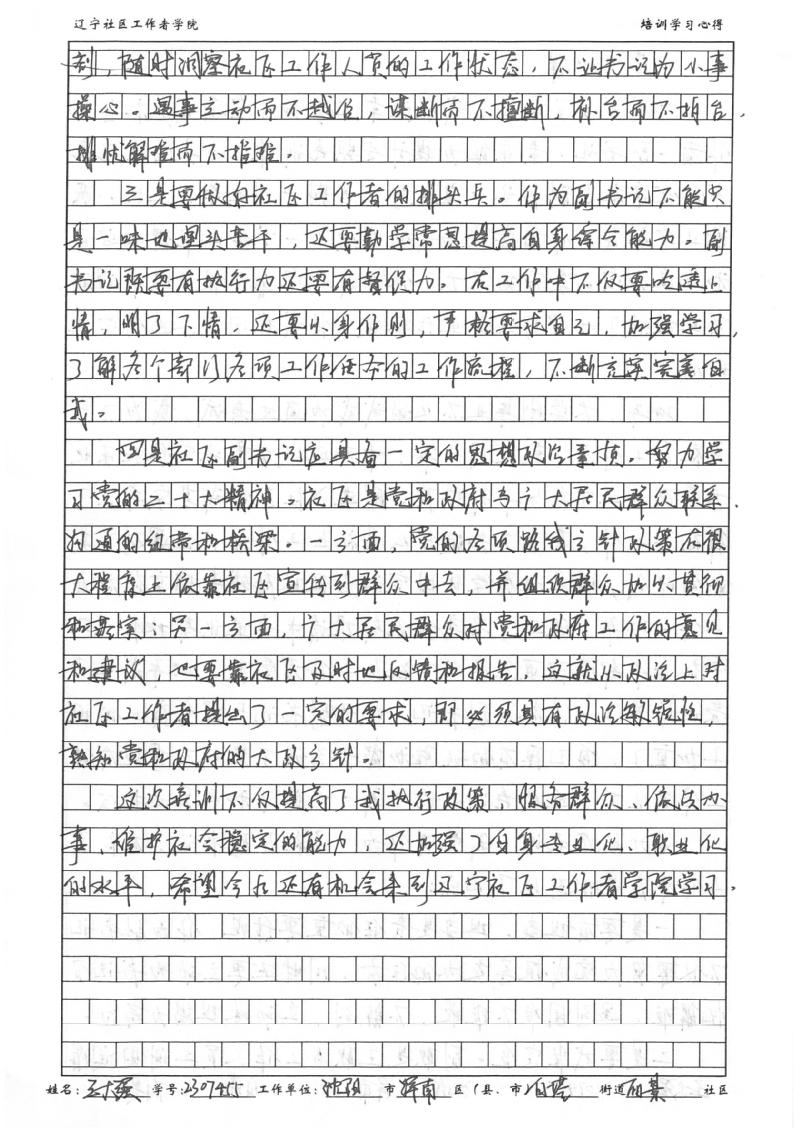 辽宁社区工作者学院 培训学习心得
刻，随时洞察社区工作人员的工作状态，不让书记为小事
操心。遇事主动而不越位，谋断而不擅断，补台而不拆台，
排忧解难而不推难。
三是要做好社区工作者的排头兵。作为副书记不能只
是一味地埋头苦干，还要勤学常思提高自身综合能力。副
书记既要有执行力还要有督促力。在工作中不仅要吃透上
情，明了下情，还要以身作则，严格要求自己，加强学习，
了解各个部门各项工作任务的工作流程，不断充实完善自
我。
四是社区副书记应具备一定的思想政治素质。努力学
习党的二十大精神。社区是党和政府与广大居民群众联系、
沟通的纽带和桥梁。一方面，党的各项路线方针政策在很
大程度上依靠社区宣传到群众中去，并组织群众加以贯彻
和落实；另一方面，广大居民群众对党和政府工作的意见
和建议，也要靠社区及时地反馈和报告。这就从政治上对
社区工作者提出了一定的要求，即必须具有政治敏锐性，
熟知党和政府的大政方针。
这次培训不仅提高了我执行政策、服务群众、依法办
事、维护社会稳定的能力，还加强了自身专业化、职业化
的水平，希望今后还有机会来到辽宁社区工作者学院学习。
姓名： 学号：2307455 工作单位：沈阳 市 浑南 区（县、市 白塔 街道 社区